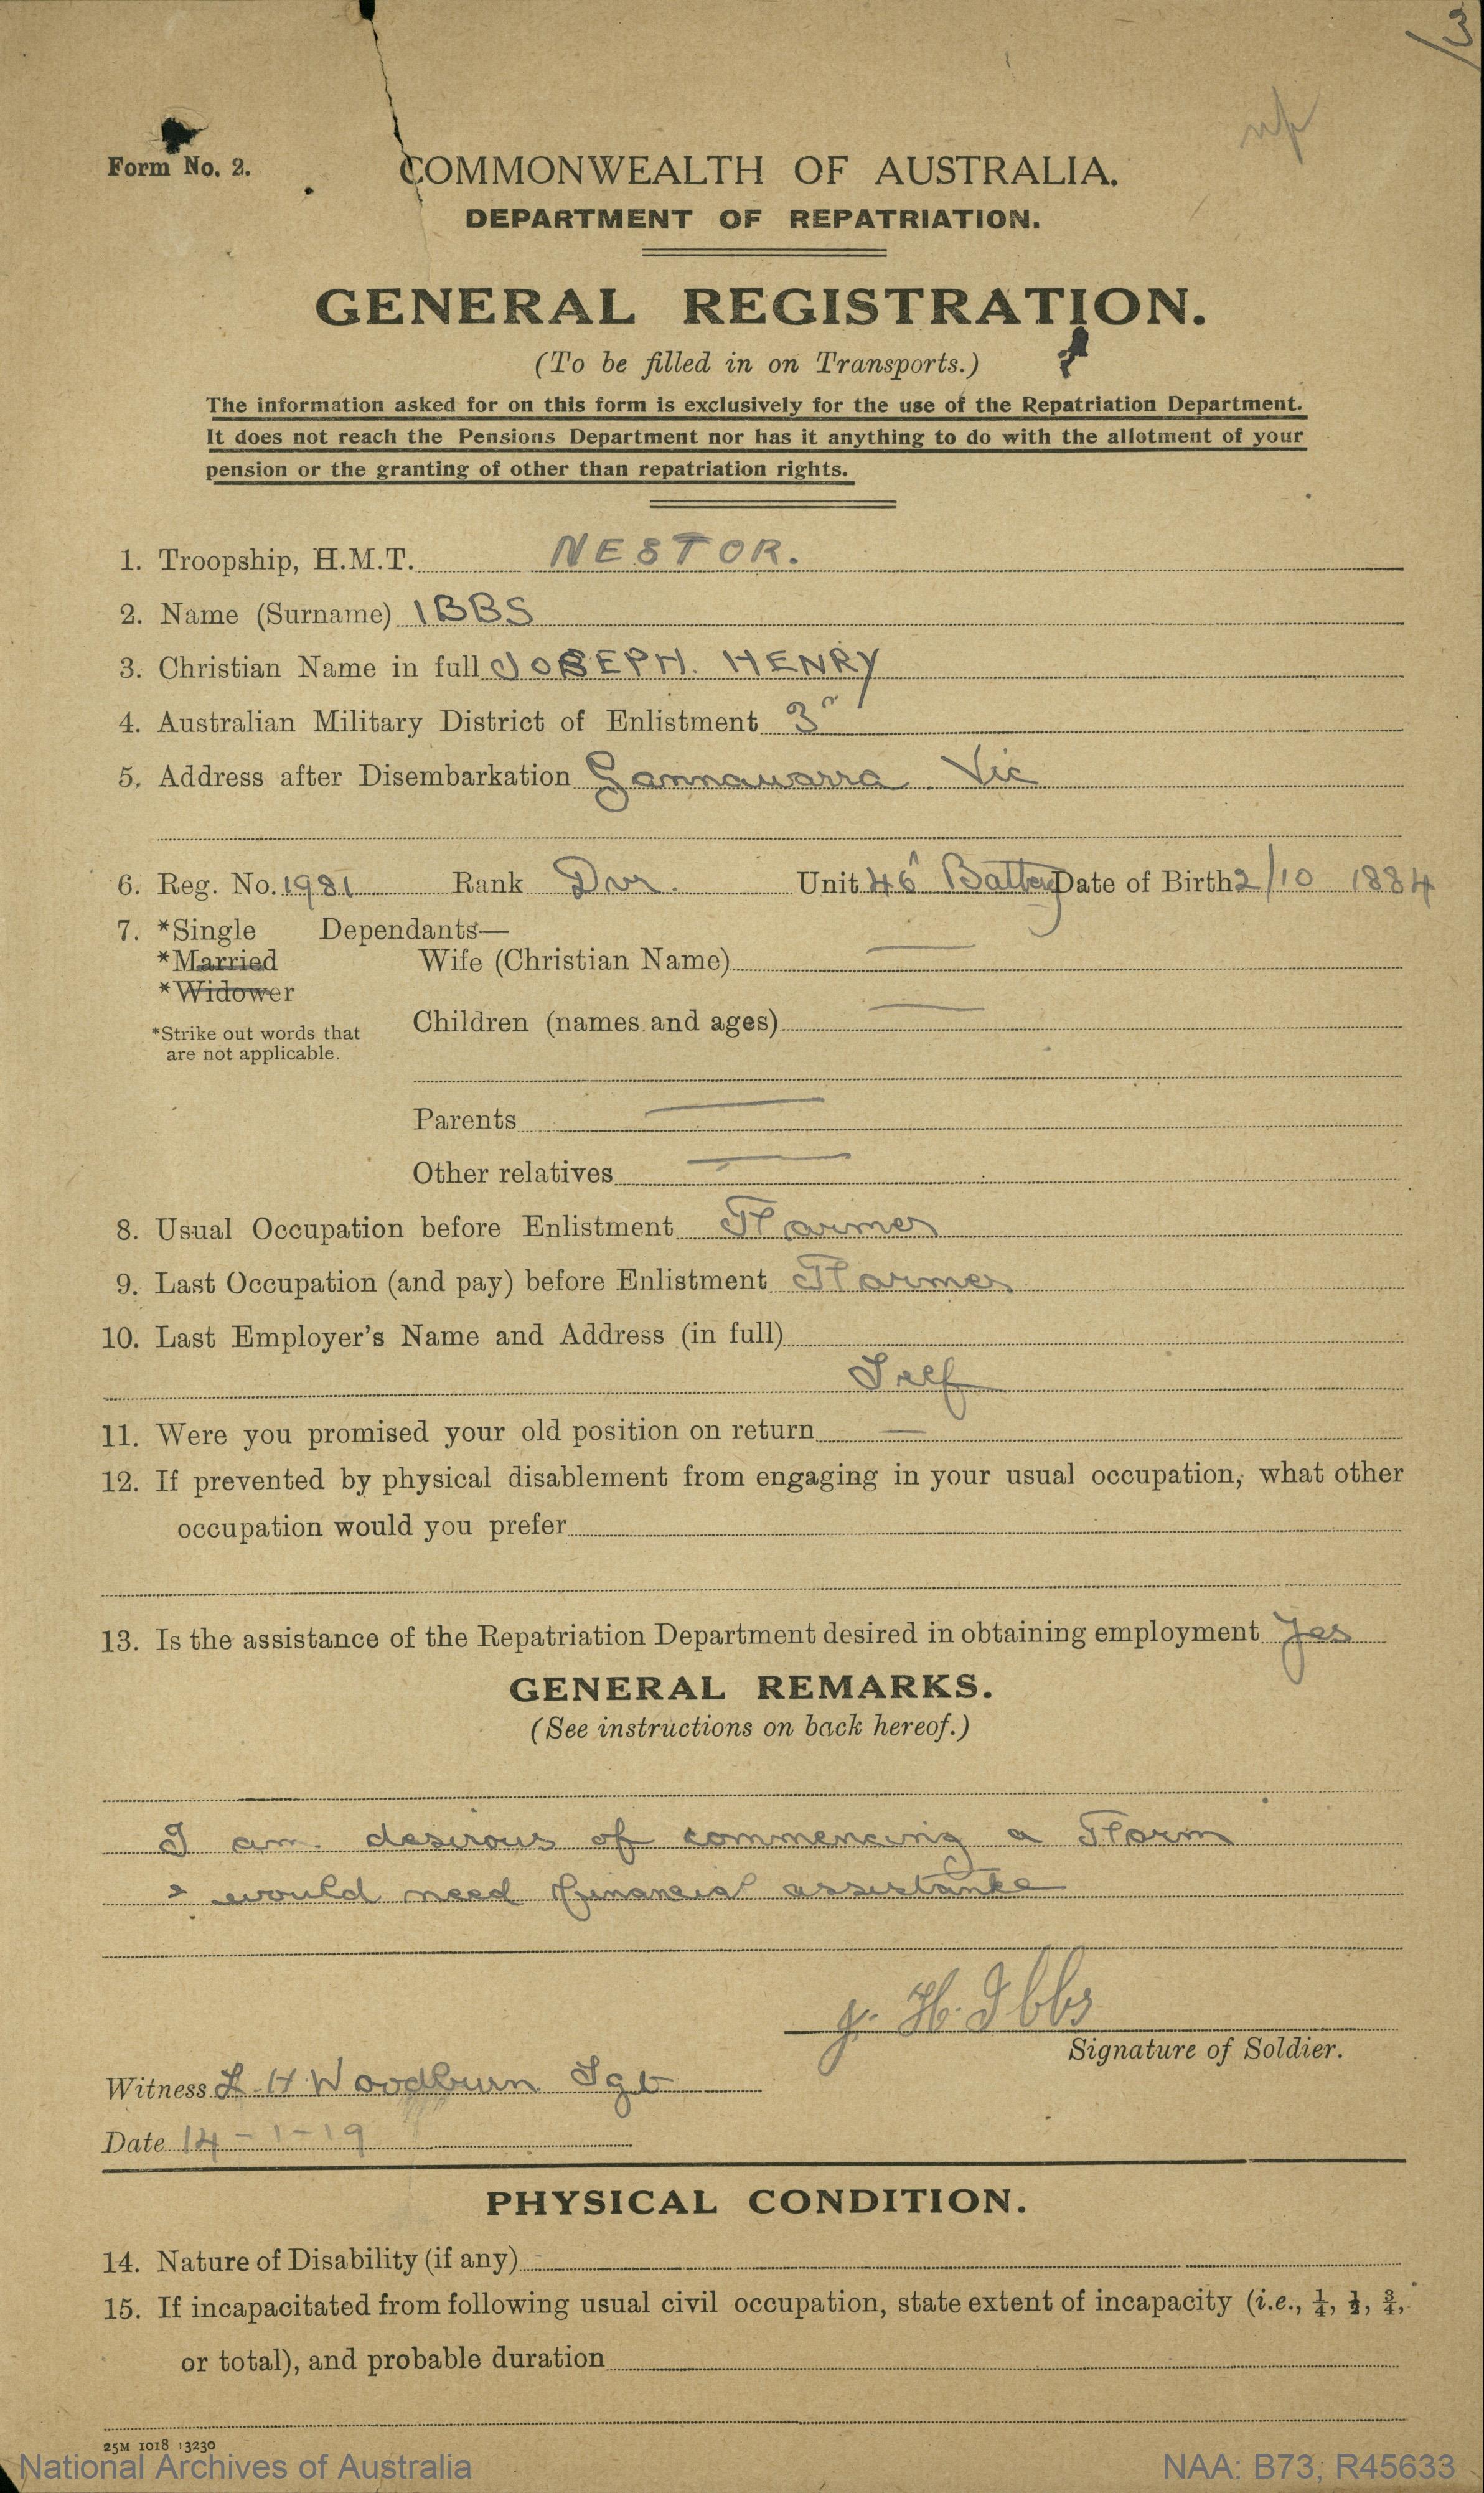 13
Form No. 2.
COMMONWEALTH OF AUSTRALIA.
DEPARTMENT OF REPATRIATION.
GENERAL REGISTRATION.
(To be filled in on Transports.)
The information asked for on this form is exclusively for the use of the Repatriation Department.
It does not reach the Pensions Department nor has it anything to do with the allotment of your
pension or the granting of other than repatriation rights.
1. Troopship, H.M.T. NESTOR.
2. Name (Surname) IBBS
3. Christian Name in full JOSEPH. HENRY
4. Australian Military District of Enlistment 3
5. Address after Disembarkation Gannawarra. Vic
6. Reg. No. 1981 Rank Dvr. Unit 46 Battery Date of Birth 2/10 1884
7. *Single Dependants—
*Married Wife (Christian Name) —
*Widower
*Strike out words that
are not applicable.
Children (names and ages) —
Parents —
Other relatives —
8. Usual Occupation before Enlistment Farmer
9. Last Occupation (and pay) before Enlistment Farmer
10. Last Employer's Name and Address (in full)
Self
11. Were you promised your old position on return —
12. If prevented by physical disablement from engaging in your usual occupation, what other
occupation would you prefer
13. Is the assistance of the Repatriation Department desired in obtaining employment Yes
GENERAL REMARKS.
(See instructions on back hereof.)
I am. desirous of commencing a Farm
& would need financial assistance
J. H. Ibbs
Signature of Soldier.
Witness L H Woodburn Sgt
Date 14-1-19
PHYSICAL CONDITION.
14. Nature of Disability (if any) -
15. If incapacitated from following usual civil occupation, state extent of incapacity (i.e., ¼, ½, ¾,
or total), and probable duration
25M 1018 13230
National Archives of Australia
NAA: B73, R45633